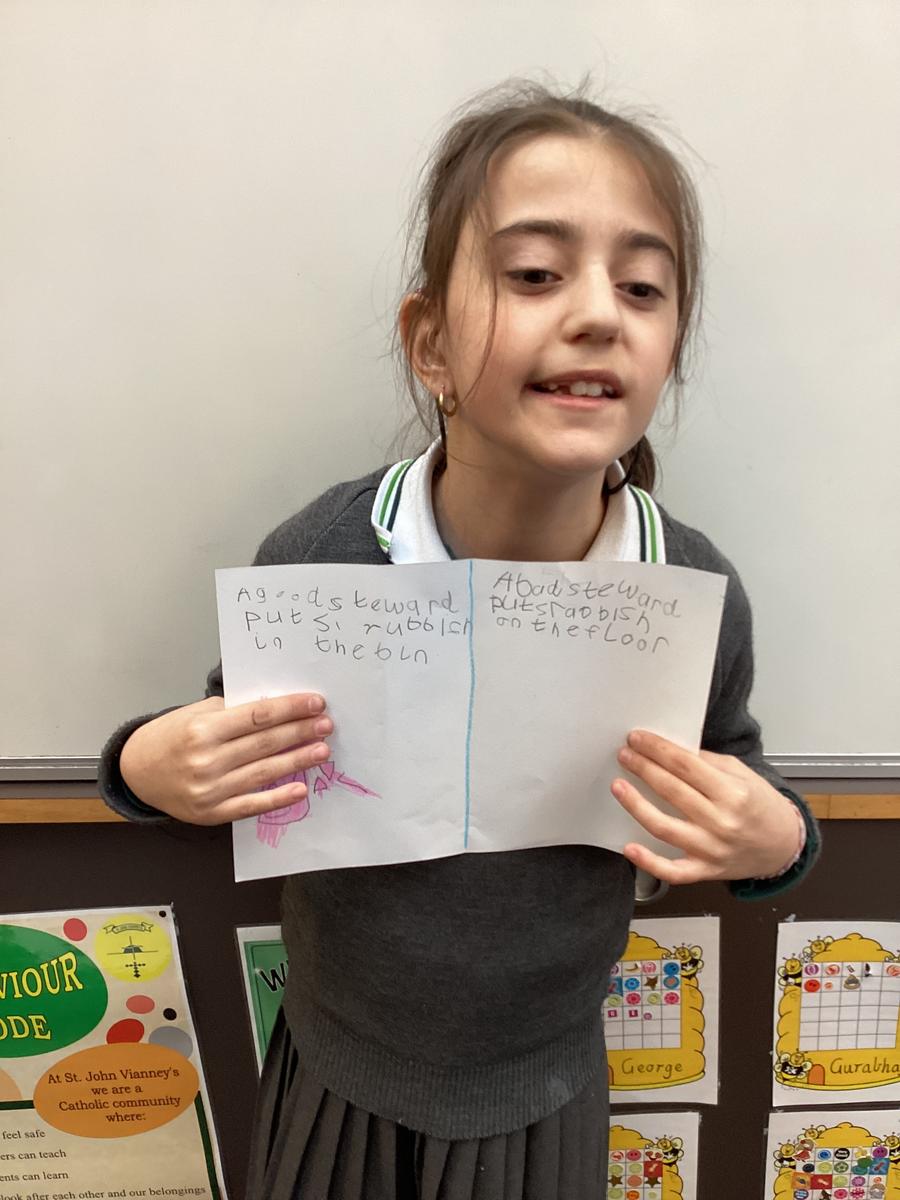 A good steward
puts rubbish
in the bin
A bad steward
puts rabbish
on the floor
VIOUR
ODE
At St. John Vianney's
we are a
Catholic community
where:
feel safe
ers can teach
ents can learn
look after each other and our belongings
W
George
Gurabha